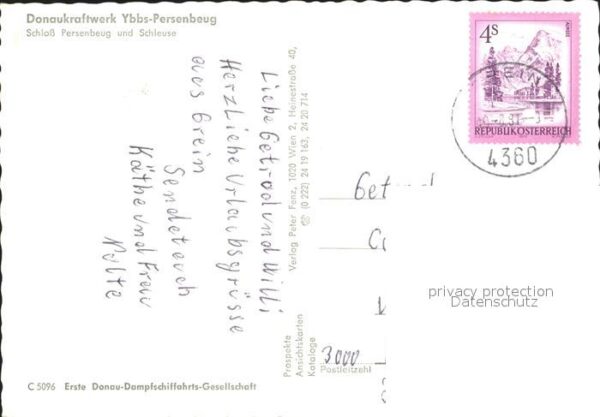 Donaukraftwerk Ybbs-Persenbeug
Schloß Persenbeug und Schleuse
Liebe Getrad und Willi
Herzliche Urlaubsgrüsse
aus Grein
Sendet euch
Käthe und Frau
Nolte
Verlag Peter Fenz, 1020 Wien 2, Heinestraße 40,
☏ (0 222) 24 19 163, 24 20 714
Prospekte
Ansichtskarten
Kataloge
C 5096 Erste Donau-Dampfschiffahrts-Gesellschaft
4S
REPUBLIK ÖSTERREICH
4360
Get
3000
Postleitzahl
privacy protection
Datenschutz